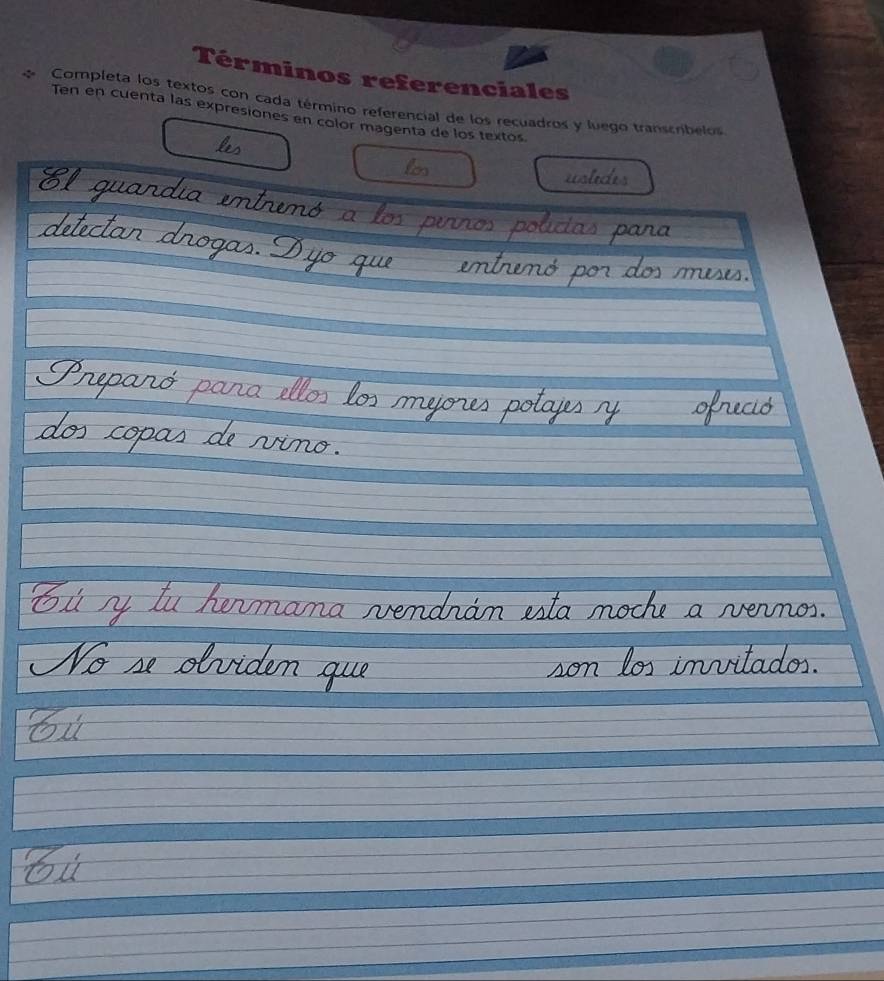 Términos referenciales
Completa los textos con cada término referencial de los recuadros y luego transcríbelos.
Ten en cuenta las expresiones en color magenta de los textos.
les
los
ustedes
El guardia entrenó a los perros policías para
detectar drogas. Dijo que entrenó por dos meses.
Preparó para ellos los mejores potajes y ofreció
dos copas de vino.
Tú y tu hermana vendrán esta noche a vernos.
No se olviden que son los invitados.
Tú
Tú